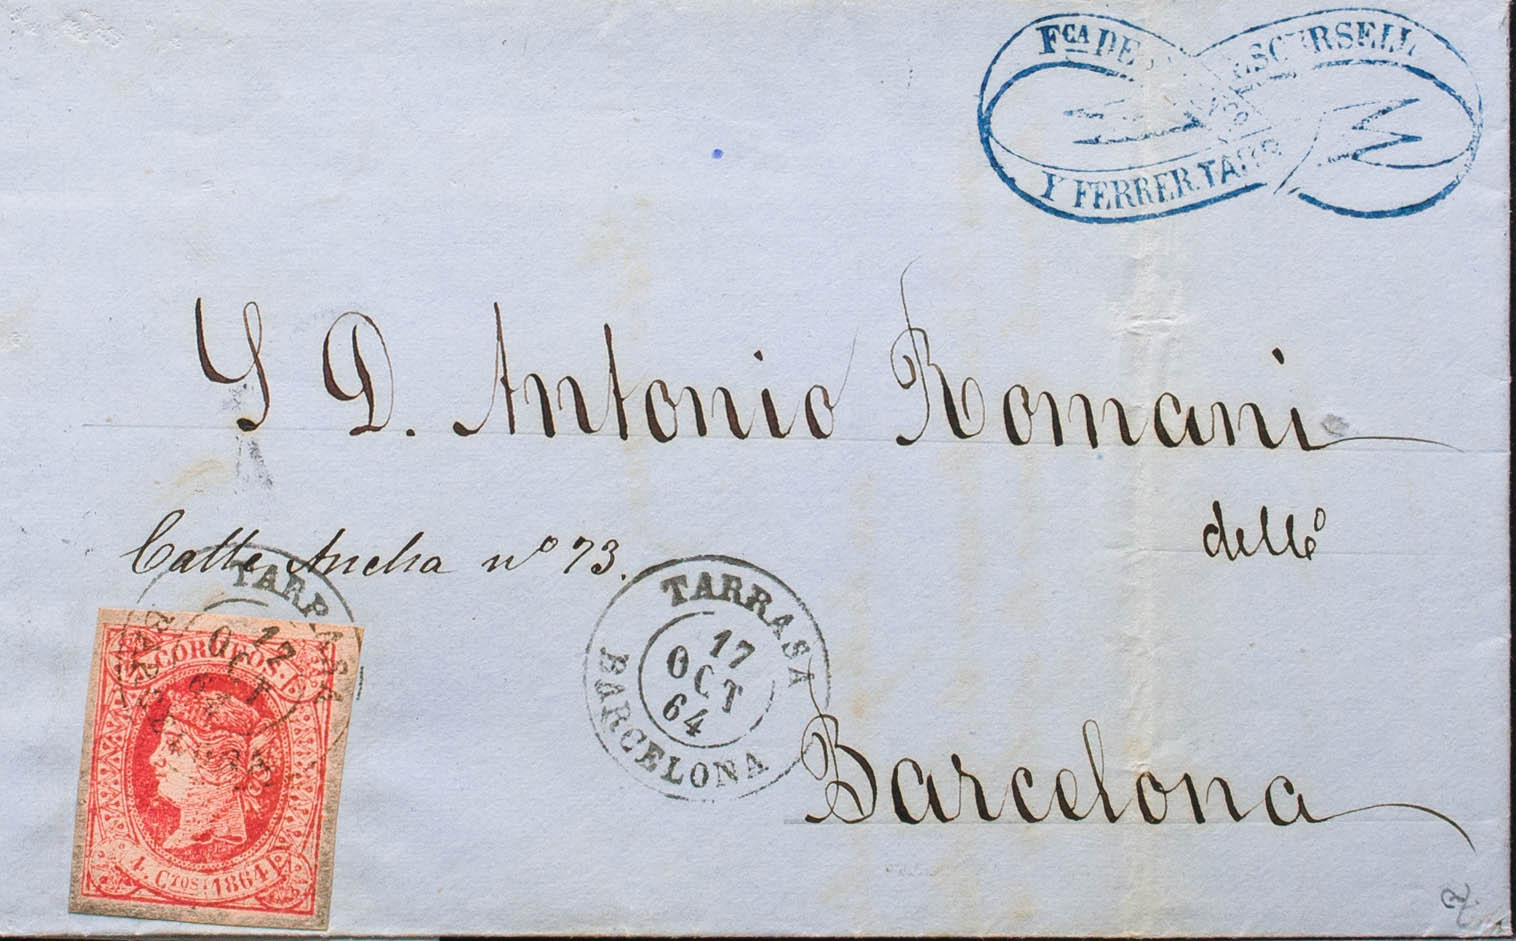 Fca DE ESCURSELL
Y FERRER. TARR
S D. Antonio Romani
Calle Ancha nº 73.
TARRASA
17
OCT
64
BARCELONA
TARRASA
17
OCT
CORREOS.
4 CTOS. 1864
Barcelona